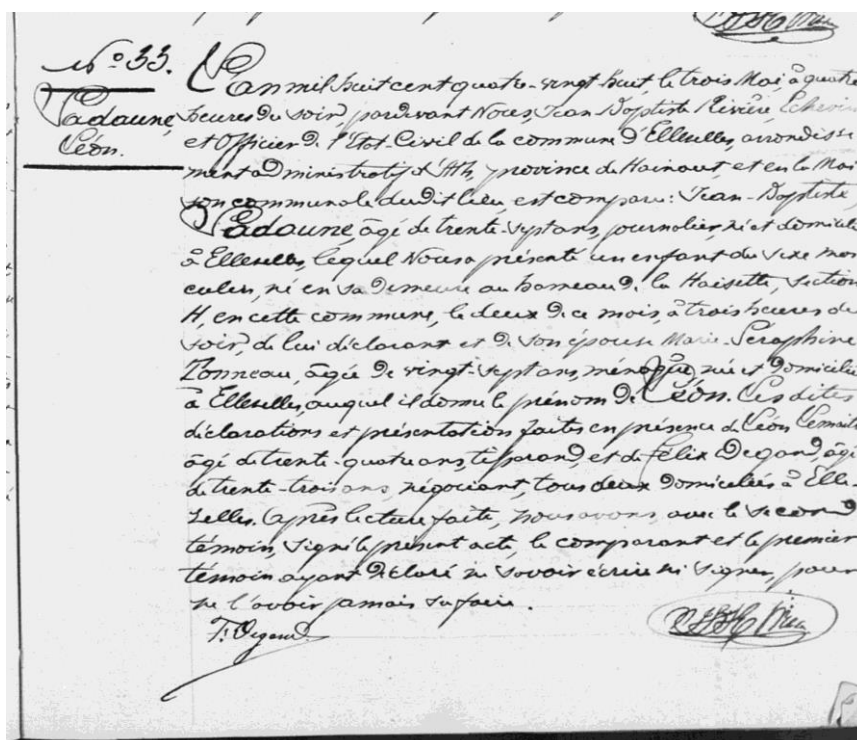 N° 33.
Ladaune,
Léon.
L'an mil huit cent quatre-vingt-huit, le trois Mai, à quatre
heures du soir, pardevant Nous, Jean-Baptiste Rivière, Echevin
et Officier de l'Etat-Civil de la commune d'Ellezelles, arrondisse
ment administratif d'Ath, province de Hainaut, et en la Mai
son communale dudit lieu, est comparu: Jean-Baptiste
Ladaune, âgé de trente-sept ans, journalier, né et domicilié
à Ellezelles, lequel Nous a présenté un enfant du sexe mas
culin, né en sa demeure au hameau de la Haisette, section
H, en cette commune, le deux de ce mois, à trois heures du
soir, de lui déclarant et de son épouse Marie-Séraphine
Tonneau, âgée de vingt-sept ans, ménagère, née et domiciliée
à Ellezelles, auquel il donne le prénom de Léon. Ces dites
déclarations et présentation faites en présence de Léon
âgé de trente-quatre ans, tisserand, et de Félix Degand, âgé
de trente-trois ans, négociant, tous deux domiciliés à Elle-
zelles. Après lecture faite, nous avons, avec le second
témoin, signé le présent acte, le comparant et le premier
témoin ayant déclaré ne savoir écrire ni signer, pour
ne l'avoir jamais su faire.
F. Degand